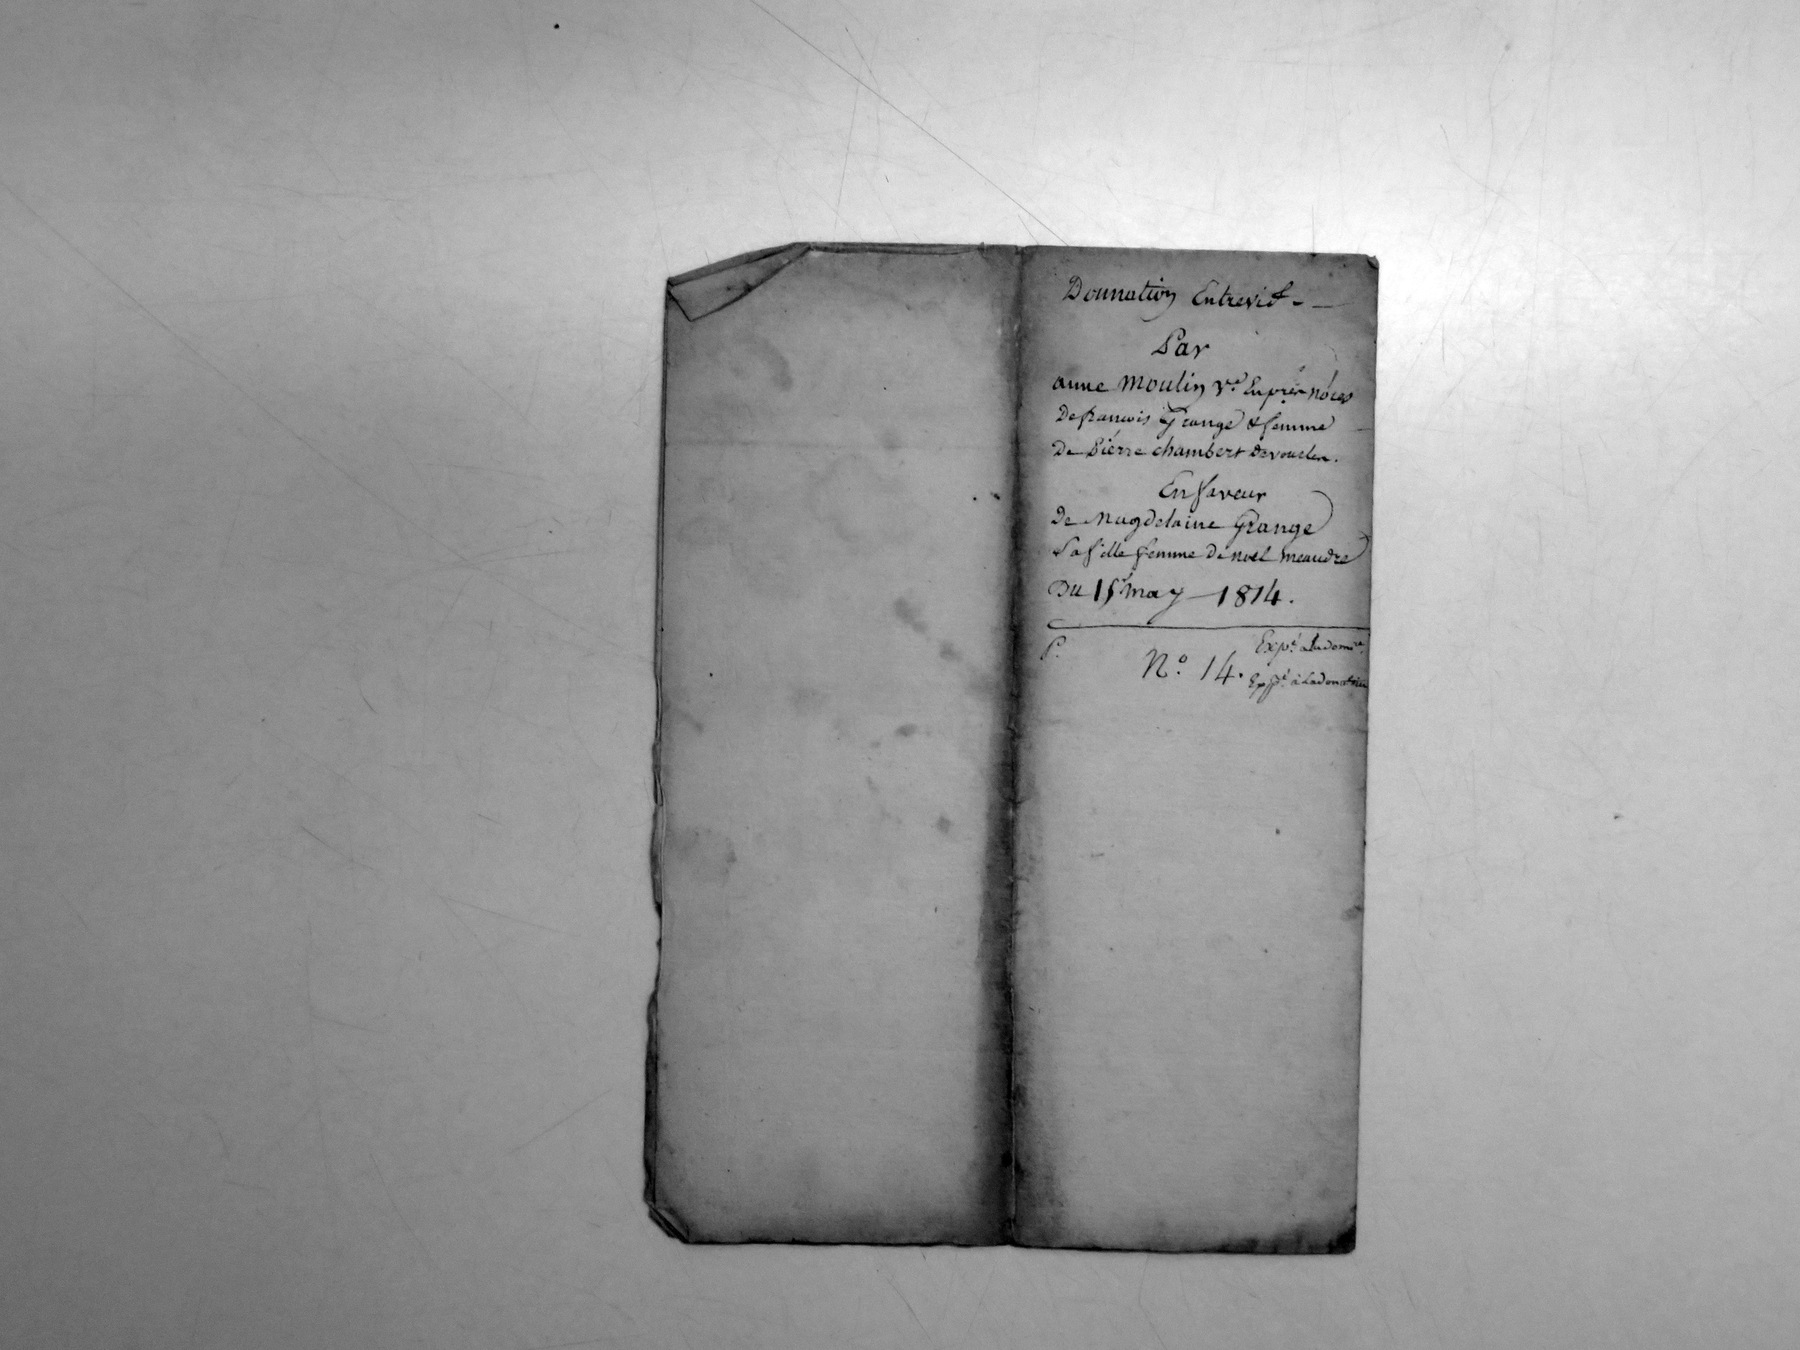 Donnation Entrevif -
Par
anne moulin ve En pres noces
De francois Grange & femme
De Pierre chambert
En faveur
De Magdelaine Grange
Sa fille femme De noel meaudre
Du 15 may - 1814.
P. No. 14.
Expt a la donatrice